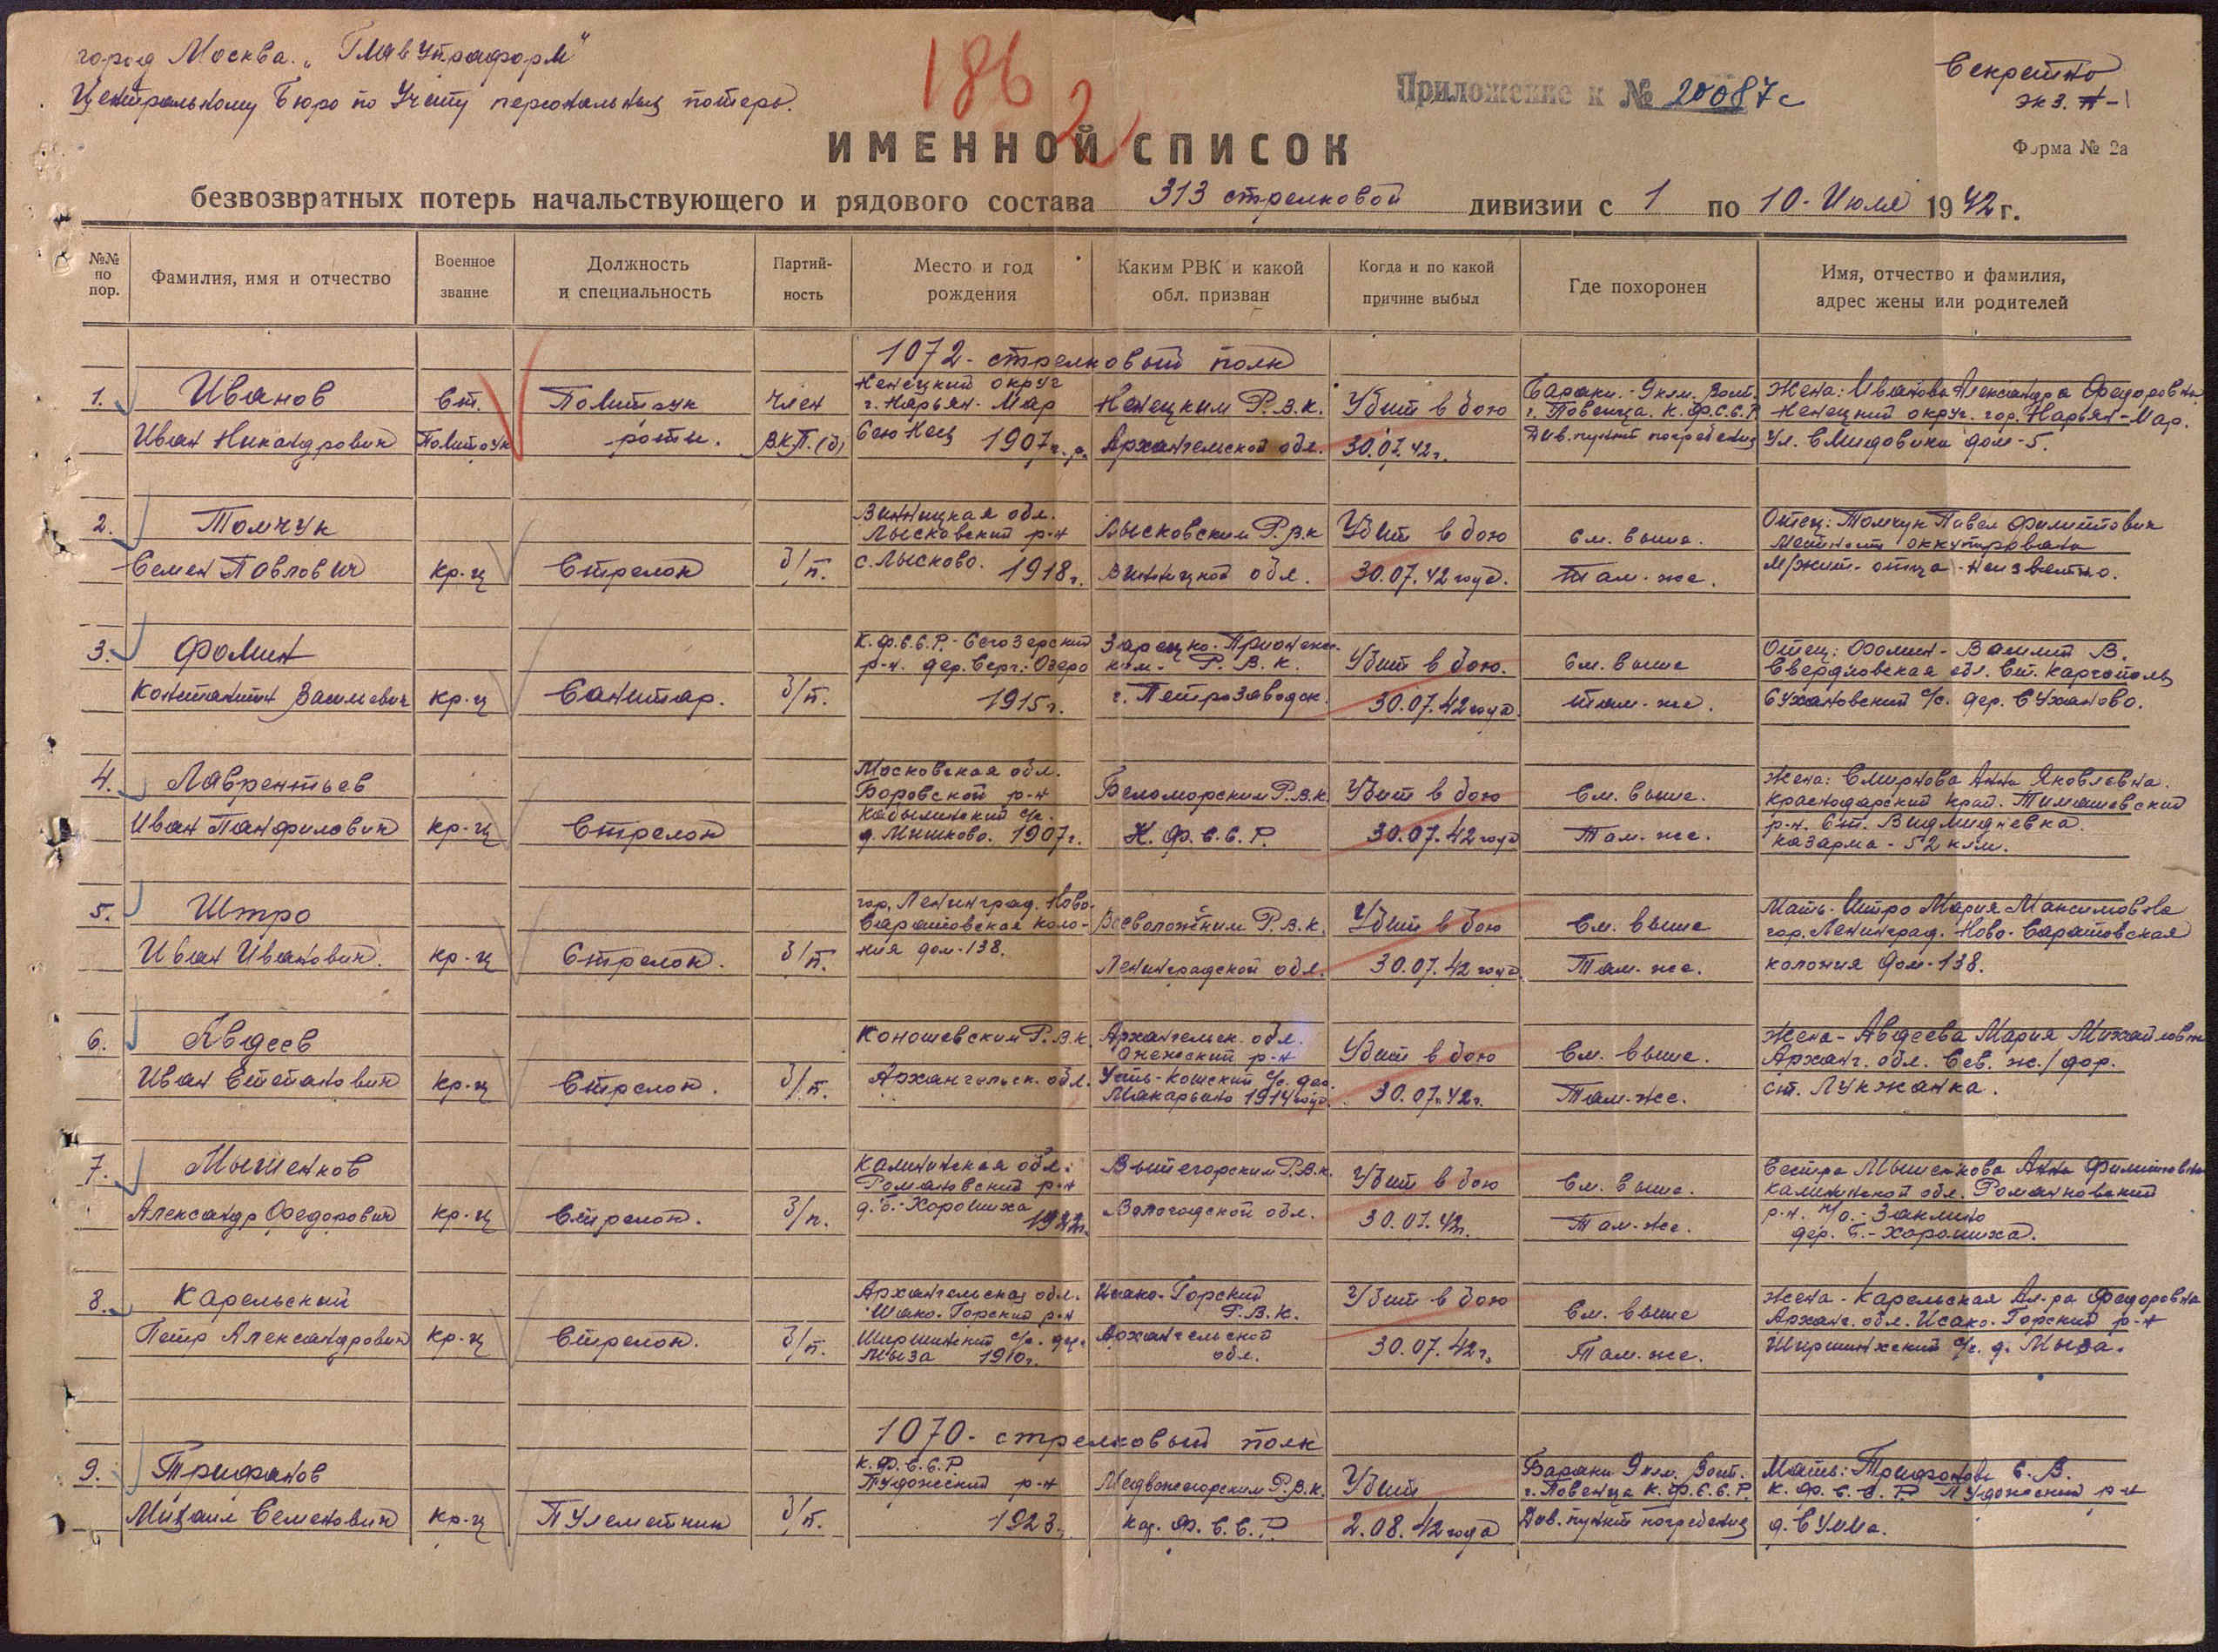 город Москва. „Главупраформ"
Центральному Бюро по Учету персональных потерь.
186
2
Приложение к № 20087с
Секретно
экз. № 1
Форма № 2а
ИМЕННОЙ СПИСОК
безвозвратных потерь начальствующего и рядового состава 313 стрелковой дивизии с 1 по 10 Июля 1942 г.
№№ по пор.
Фамилия, имя и отчество
Военное звание
Должность и специальность
Партийность
Место и год рождения
Каким РВК и какой обл. призван
Когда и по какой причине выбыл
Где похоронен
Имя, отчество и фамилия, адрес жены или родителей
1072 - стрелковый полк
1. Иванов
Иван Никандрович
Ст. Политрук
Политрук роты.
Член В.К.П.(б)
Ненецкий округ
г. Нарьян-Мар
1907 г.р.
Ненецким Р.В.К.
Архангельской обл.
Убит в бою
30.07.42г.
Бараки - 9 клм. Вост.
г. Повенца. К.Ф.С.С.Р.
Див. пункт погребения
Жена: Иванова Александра Федоровна
Ненецкий округ. гор. Нарьян-Мар.
Ул. Смидовича дом-5.
2. Томчук
Семен Павлович
кр-ц
Стрелок
б/п.
Винницкая обл.
Лысковский р-н
с. Лысково. 1918г.
Лысковским Р.В.К
Винницкой обл.
Убит в бою
30.07.42 года.
См. выше.
Там-же.
Отец: Томчук Павел Филиппович
Местность оккупирована
М/жит. отца - неизвестно.
3. Фомин
Константин Васильевич
кр-ц
Санитар.
б/п.
К.Ф.С.С.Р. - Сегозерский
р-н. дер. Серг: Озеро
1915г.
Р.В.К.
г. Петрозаводск.
Убит в бою.
30.07.42 года.
См. выше
там-же.
Отец: Фомин - Василий В.
Свердловская обл. Ст. Каргополь
Сухановский с/с. дер. Суханово.
4. Лаврентьев
Иван Панфилович
кр-ц
Стрелок
Московская обл.
Боровской р-н
Кабылинский с/с.
д. Мишково. 1907г.
Беломорским Р.В.К.
К.Ф.С.С.Р.
Убит в бою
30.07.42 года
См. выше.
Там-же.
Жена: Смирнова Анна Яковлевна.
Краснодарский край. Тимашевский
р-н. Ст. Видмидневка.
казарма - 52 клм.
5. Штро
Иван Иванович.
кр-ц
Стрелок.
б/п.
гор. Ленинград. Ново-
Саратовская коло-
ния дом-138.
Всеволожским Р.В.К.
Ленинградской обл.
Убит в бою
30.07.42 года.
См. выше
Там-же.
Мать - Штро Мария Максимовна
гор. Ленинград. Ново-Саратовская
колония дом-138.
6. Авдеев
Иван Степанович
кр-ц
Стрелок.
б/п.
Коношевским Р.В.К.
Архангельск. обл.
Архангельск. обл.
Онежский р-н
Усть-Кожский с/с. дер.
Макарьино 1914 года.
Убит в бою
30.07.42г.
См. выше.
Там-же.
Жена - Авдеева Мария Михайловна
Арханг. обл. Сев. ж./дор.
ст. Лукжанка.
7. Мышенков
Александр Федорович
кр-ц
Стрелок.
б/п.
Калининская обл.
Романовский р-н
д. Б.-Хорошиха
Вытегорским Р.В.К.
Вологодской обл.
Убит в бою
30.07.42г.
См. выше.
Там-же.
Сестра Мышенкова Анна Филипповна
Калининской обл. Романовский
р-н. п/о. - Заклино
дер. Б.-Хорошиха.
8. Карельский
Петр Александрович
кр-ц
Стрелок.
б/п.
Архангельская обл.
Исако-Горский р-н
Ширшинский с/с. дер.
Мыза 1910г.
Исако-Горский
Р.В.К.
Архангельской
обл.
Убит в бою
30.07.42г.
См. выше
Там-же.
Жена - Карельская Ал-ра Федоровна
Арханг. обл. Исако-Горский р-н
Ширшинский с/с. д. Мыза.
1070 - стрелковый полк
9. Трифанов
Михаил Семенович
кр-ц
Пулеметчик
б/п.
К.Ф.С.С.Р
Пудожский р-н
1923.
Медвежегорским Р.В.К.
Кар. Ф.С.С.Р
Убит
2.08.42 года
Бараки 9 клм. Вост.
г. Повенца К.Ф.С.С.Р.
Див. пункт погребения
Мать: Трифонова С.В.
К.Ф.С.С.Р Пудожский р-н
д. Сума.